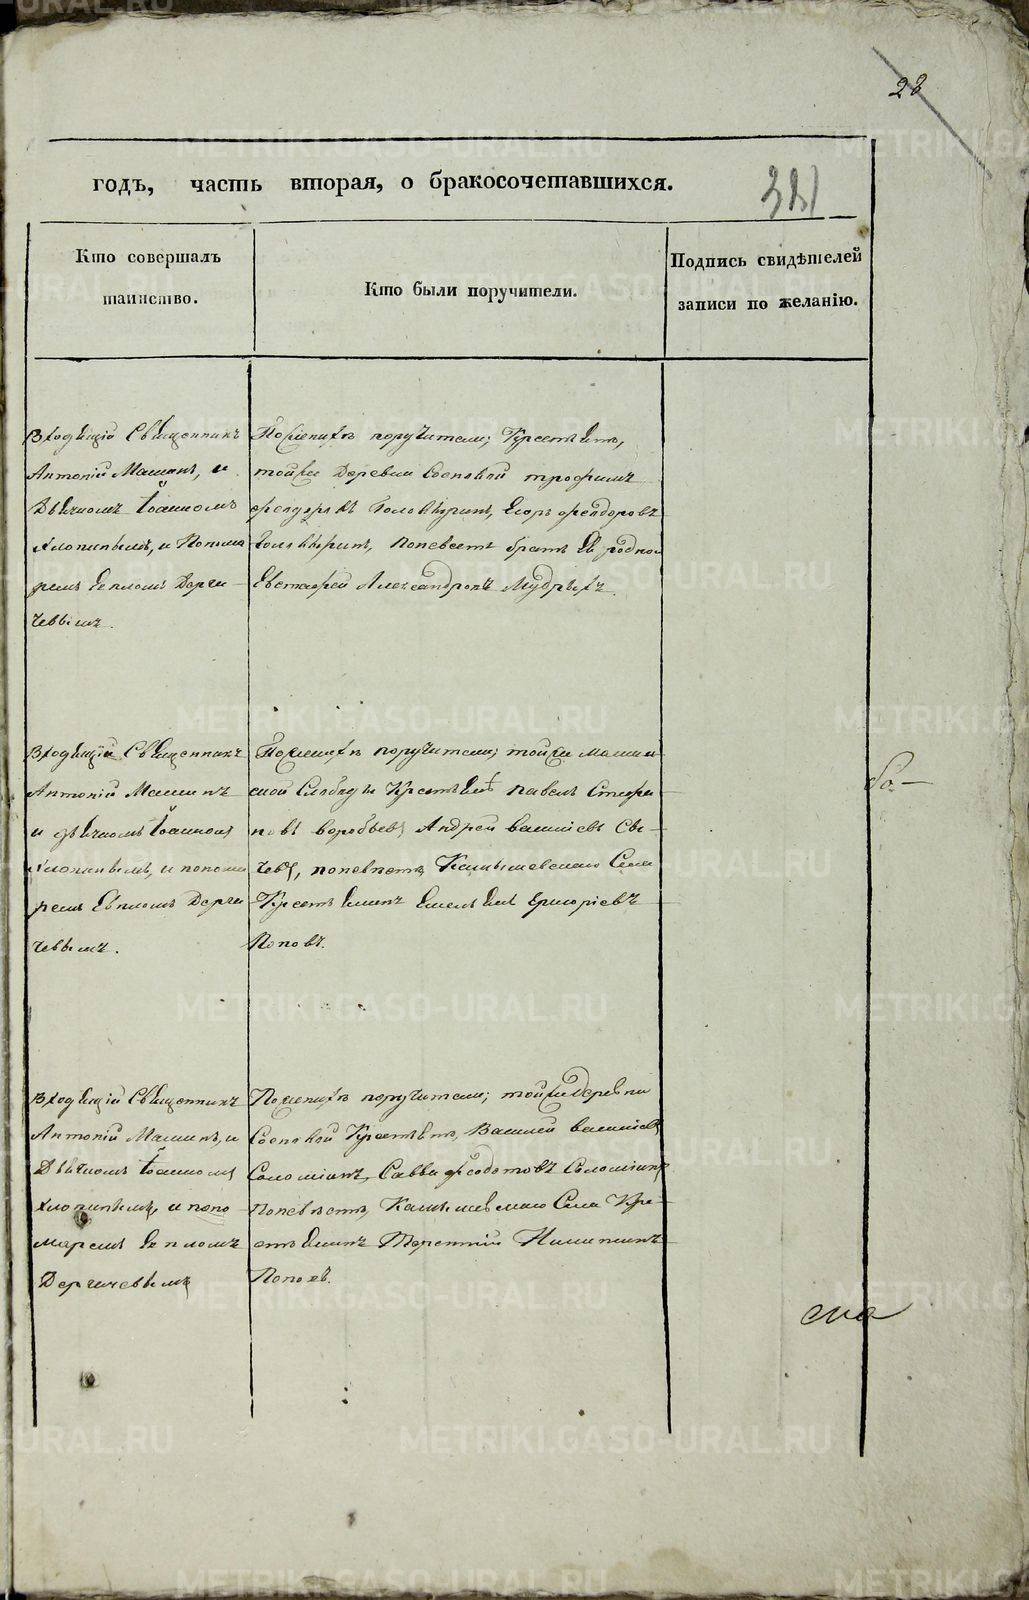 28
годъ, часть вторая, о бракосочетавшихся.
Кто совершалъ
таинство.
Кто были поручители.
Подпись свидѣтелей
записи по желанію.
Входящій Священникъ
Антоній Машинъ, и
Дьячкомъ Іоанномъ
и Понома
ремъ Евпломъ Дерги
чевымъ.
По женихѣ поручители; Крестьяне,
тойже Деревни Сосновой трофимъ
феодоровъ Головыринъ, Егоръ феодоровъ
Головыринъ, по невестѣ братъ Ея родной
Евстафей Александровъ Мудрыхъ.
Входящій Священникъ
Антоній Машинъ
и дьячкомъ Іоанномъ
и понома
ремъ Евпломъ Дерги
чевымъ.
По женихѣ поручители; тойже Мамин
ской Слободы Крестьяне павелъ Стефа
новъ Воробьевъ, Андрей василіевъ Сы-
чевъ, по невѣстѣ, Камышевскаго Села
Крестьянинъ Григоріевъ
Поповъ.
Входящій Священникъ
Антоній Машинъ, и
Дьячкомъ Іоанномъ
и поно
маремъ Евпломъ
Дергичевымъ
По женихѣ поручители; тойже деревни
Сосновой Крестьяне, Василей василіевъ
Саломіинъ, Савва феодотовъ Саломіинъ
по невѣстѣ, Камышевскаго Села Кре-
стьянинъ Терентій Никитинъ
Поповъ.
METRIKI.GASO-URAL.RU